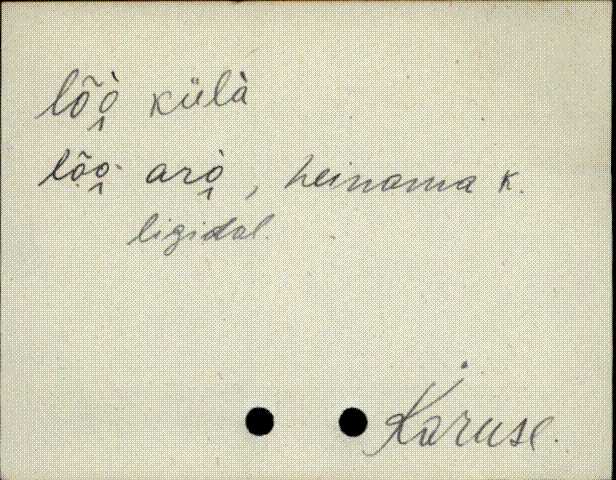 lõò̭ külà
lõò̭ arò̭, heinama k.
ligidal.
Karuse.